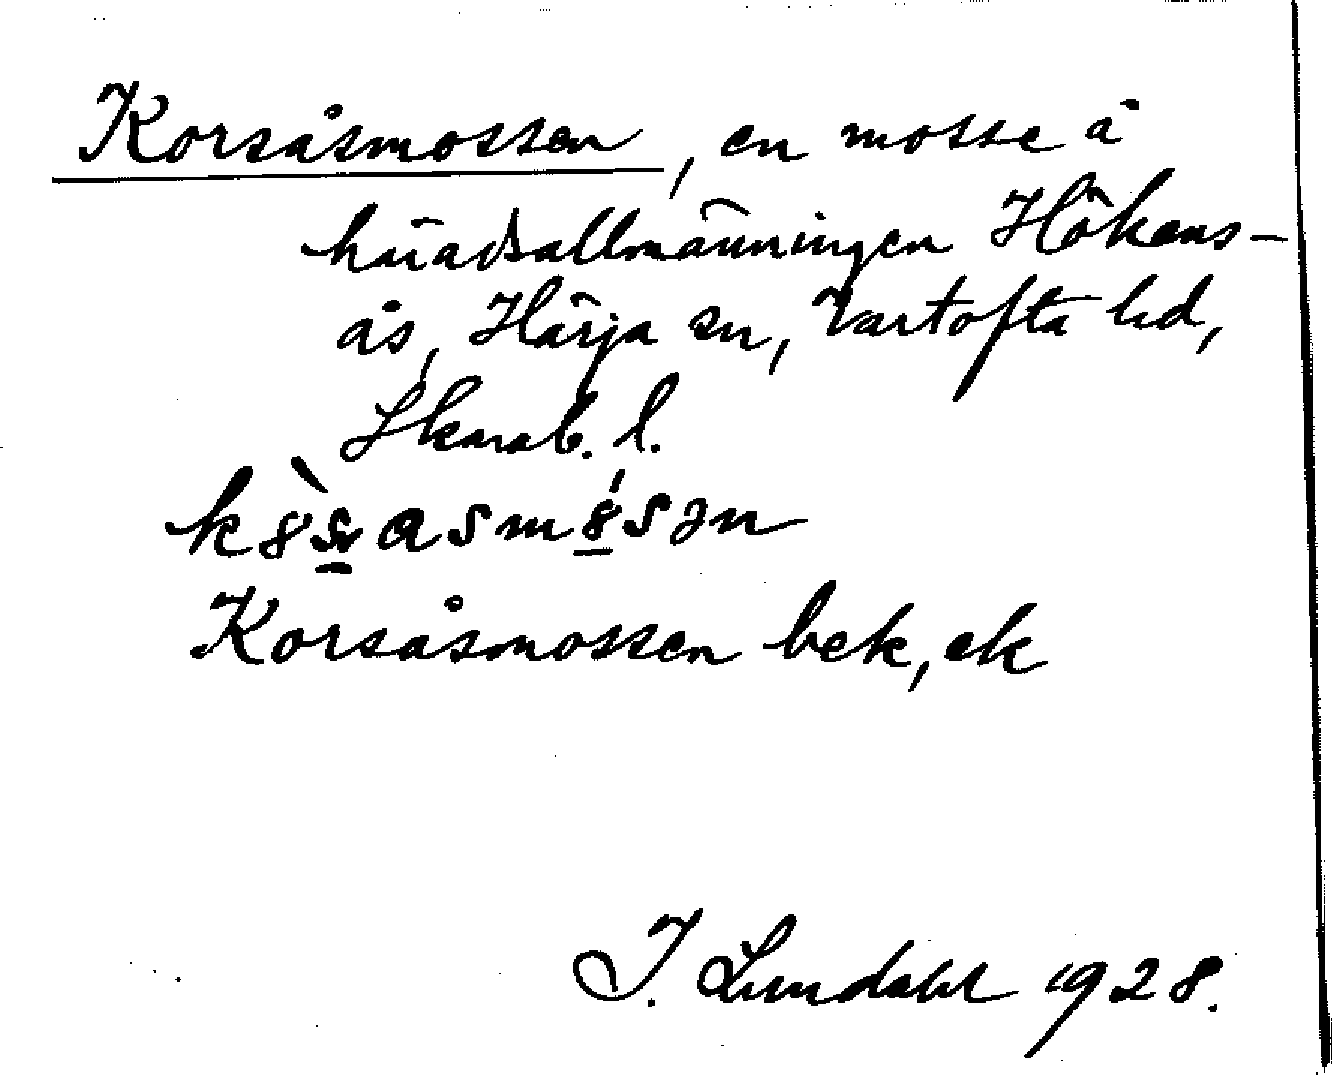 Korsåsmossen, en mosse å
häradsallmänningen Hökens-
ås, Härja sn, Vartofta hd,
Skarab. l.
Korsåsmossen bek, ek
I. Lundahl 1928.